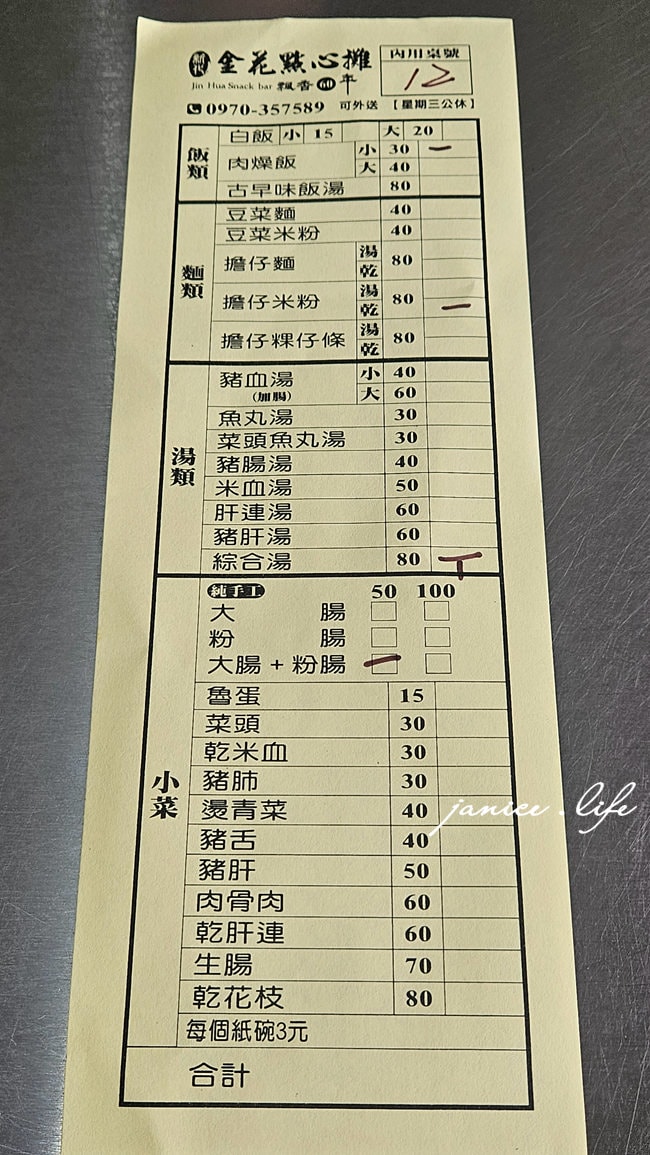 新代 金花點心攤 內用桌號
Jin Hua Snack bar 飄香60年 12
0970-357589 可外送 【星期三公休】
飯類
白飯 小 15 大 20
肉燥飯 小 30 一
大 40
古早味飯湯 80
麵類
豆菜麵 40
豆菜米粉 40
擔仔麵 湯 乾 80
擔仔米粉 湯 乾 80 一
擔仔粿仔條 湯 乾 80
湯類
豬血湯 小 40
(加腸) 大 60
魚丸湯 30
菜頭魚丸湯 30
豬腸湯 40
米血湯 50
肝連湯 60
豬肝湯 60
綜合湯 80 丅
小菜
純手工 50 100
大腸
粉腸
大腸+粉腸 一
魯蛋 15
菜頭 30
乾米血 30
豬肺 30
燙青菜 40
豬舌 40
豬肝 50
肉骨肉 60
乾肝連 60
生腸 70
乾花枝 80
每個紙碗3元
合計
janice.life